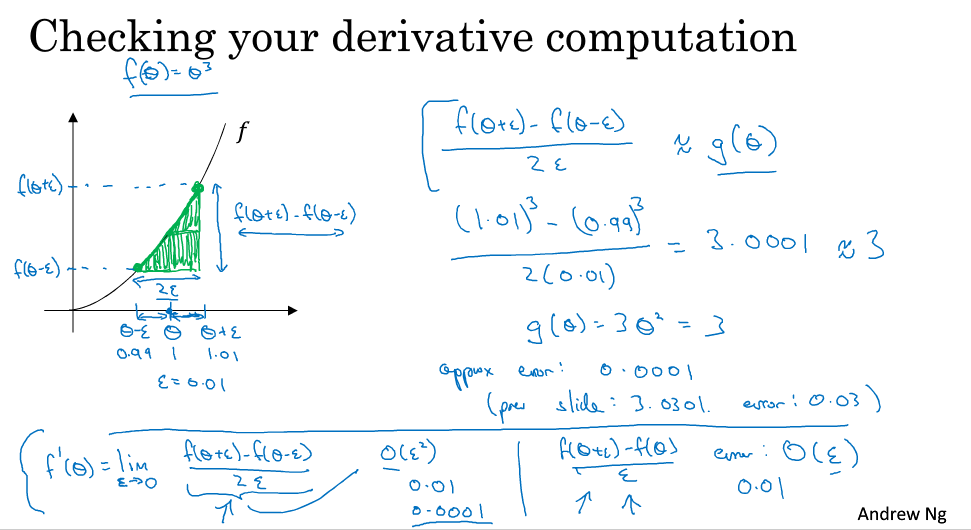 Checking your derivative computation
f(θ) = θ³
f
f(θ+ε)
f(θ-ε)
f(θ+ε) - f(θ-ε)
2ε
θ-ε θ θ+ε
0.99 1 1.01
ε = 0.01
f(θ+ε) - f(θ-ε)
2ε
≈ g(θ)
(1.01)³ - (0.99)³
2(0.01)
= 3.0001 ≈ 3
g(θ) = 3θ² = 3
approx error: 0.0001
(prev slide: 3.0301. error: 0.03)
f'(θ) = lim
ε→0
f(θ+ε) - f(θ-ε)
2ε
O(ε²)
0.01
0.0001
f(θ+ε) - f(θ)
ε
error: O(ε)
0.01
Andrew Ng